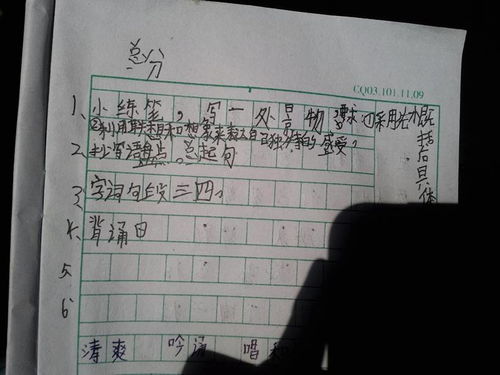 总分
CQ03.101.11.09
1、小练笔，写一处景物 要求①采用先概括后具体
②利用联想和想象来表达自己独特的感受。
2、抄背语盘点，总起句
3、字词句段三四。
4、背诵日
5
6
清爽 吟诵 唱和